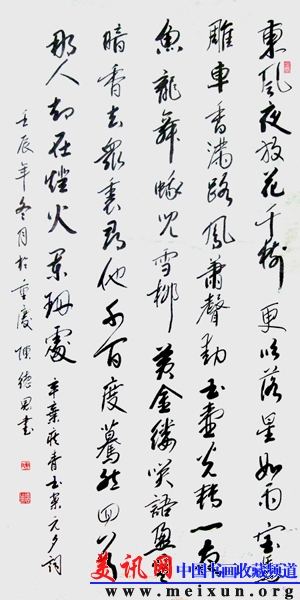 東風夜放花千樹更吹落星如雨宝馬
雕車香滿路鳳簫聲動玉壺光轉一夜
魚龍舞蛾兒雪柳黄金縷笑語盈盈
暗香去衆裏尋他千百度驀然回首
那人却在燈火闌珊處辛棄疾青玉案元夕詞
壬辰年冬月於重慶德恩書
美讯网 中国书画收藏频道
www.meixun.org